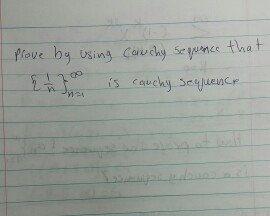 Prove by using Cauchy sequence that
{1/n}_{n=1}^{∞} is cauchy sequence